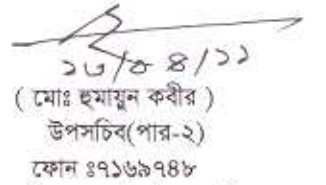 ১৩/০৪/১১
( মোঃ হুমায়ুন কবীর )
উপসচিব(পার-২)
ফোন ঃ৭১৬৯৭৪৮